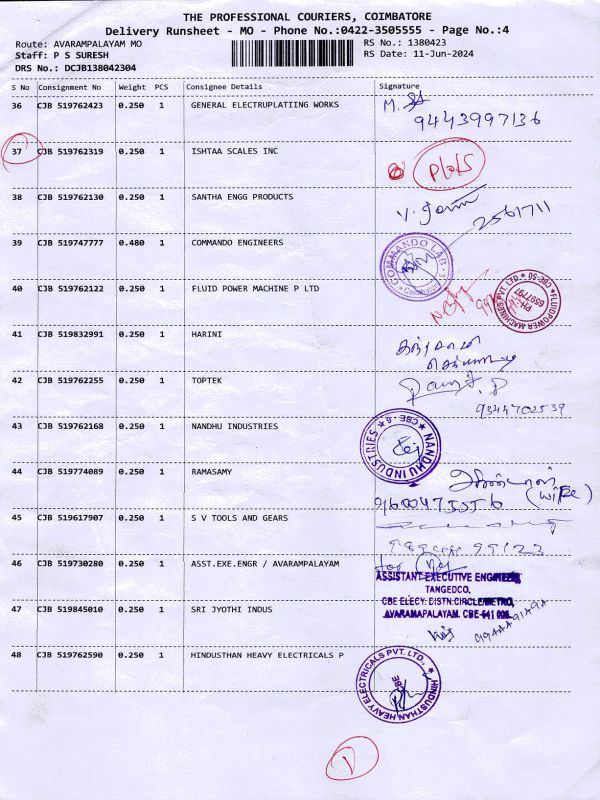 THE PROFESSIONAL COURIERS, COIMBATORE
Delivery Runsheet - MO - Phone No.:0422-3505555 - Page No.:4
Route: AVARAMPALAYAM MO
RS No.: 1380423
Staff: P S SURESH
RS Date: 11-Jun-2024
DRS No.: DCJB138042304
S No Consignment No Weight PCS Consignee Details Signature
36 CJB 519762423 0.250 1 GENERAL ELECTRUPLATIING WORKS M.
9443997136
37 CJB 519762319 0.250 1 ISHTAA SCALES INC
38 CJB 519762130 0.250 1 SANTHA ENGG PRODUCTS
2561711
39 CJB 519747777 0.480 1 COMMANDO ENGINEERS
COMMANDO LAB
40 CJB 519762122 0.250 1 FLUID POWER MACHINE P LTD
FLUIDPOWER MACHINES PVT. LTD. CBE-50
PH: 6597797
41 CJB 519832991 0.250 1 HARINI
42 CJB 519762255 0.250 1 TOPTEK
9344702539
43 CJB 519762168 0.250 1 NANDHU INDUSTRIES
NANDHU INDUSTRIES CBE-6
44 CJB 519774089 0.250 1 RAMASAMY
(wife)
45 CJB 519617907 0.250 1 S V TOOLS AND GEARS
46 CJB 519730280 0.250 1 ASST.EXE.ENGR / AVARAMPALAYAM
ASSISTANT EXECUTIVE ENGINEER
TANGEDCO,
CBE ELECY: DISTN:CIRCLE/METRO,
AVARAMAPALAYAM. CBE-641 006.
47 CJB 519845010 0.250 1 SRI JYOTHI INDUS
48 CJB 519762590 0.250 1 HINDUSTHAN HEAVY ELECTRICALS P
HINDUSTHAN HEAVY ELECTRICALS PVT. LTD.,
CBE